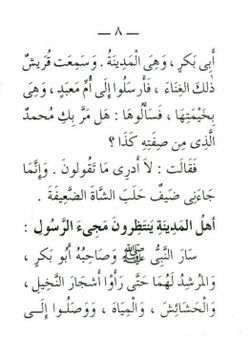 — ٨ —
أَبِى بَكرٍ ، وَهِىَ الْمَدِينَةُ . وَسَمِعَت قُرَيشٌ
ذٰلِكَ الغِنَاءَ ، فَأَرسَلُوا إِلَى أُمِّ مَعبَدٍ ، وَهِىَ
بِخَيمَتِهَا ، فَسَأَلُوهَا : هَل مَرَّ بِكِ مُحمدٌ
الَّذِى مِن صِفَتِهِ كَذَا ؟
فَقَالَت : لاَ أَدرِى مَا تَقُولُونَ . وَإِنَّمَا
جَاءَنِى ضَيفٌ حَلَبَ الشَّاةَ الضَّعِيفَةَ .
أَهلُ المَدِينَةِ يَنتَظِرونَ مَجِىءَ الرَّسُولِ :
سَارَ النَّبِىُّ ﷺ وَصَاحِبُهُ أَبُو بَكرٍ ،
وَالمُرشِدُ لَهُمَا حَتَّى رَأَوْا أَشجَارَ النَّخِيلِ ،
وَالحَشَائِشَ ، وَالمِيَاهَ ، وَوَصَلُوا إِلَــى